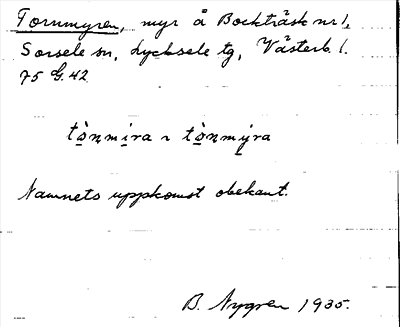 Tornmyren, myr å Bockträsk nr 1,
Sorsele sn, Lycksele tg, Västerb. l.
75 G. 42
tò̱nmi̱ra ~ tò̱nmy̱ra
Namnets uppkomst obekant.
B. Nygren 1935.